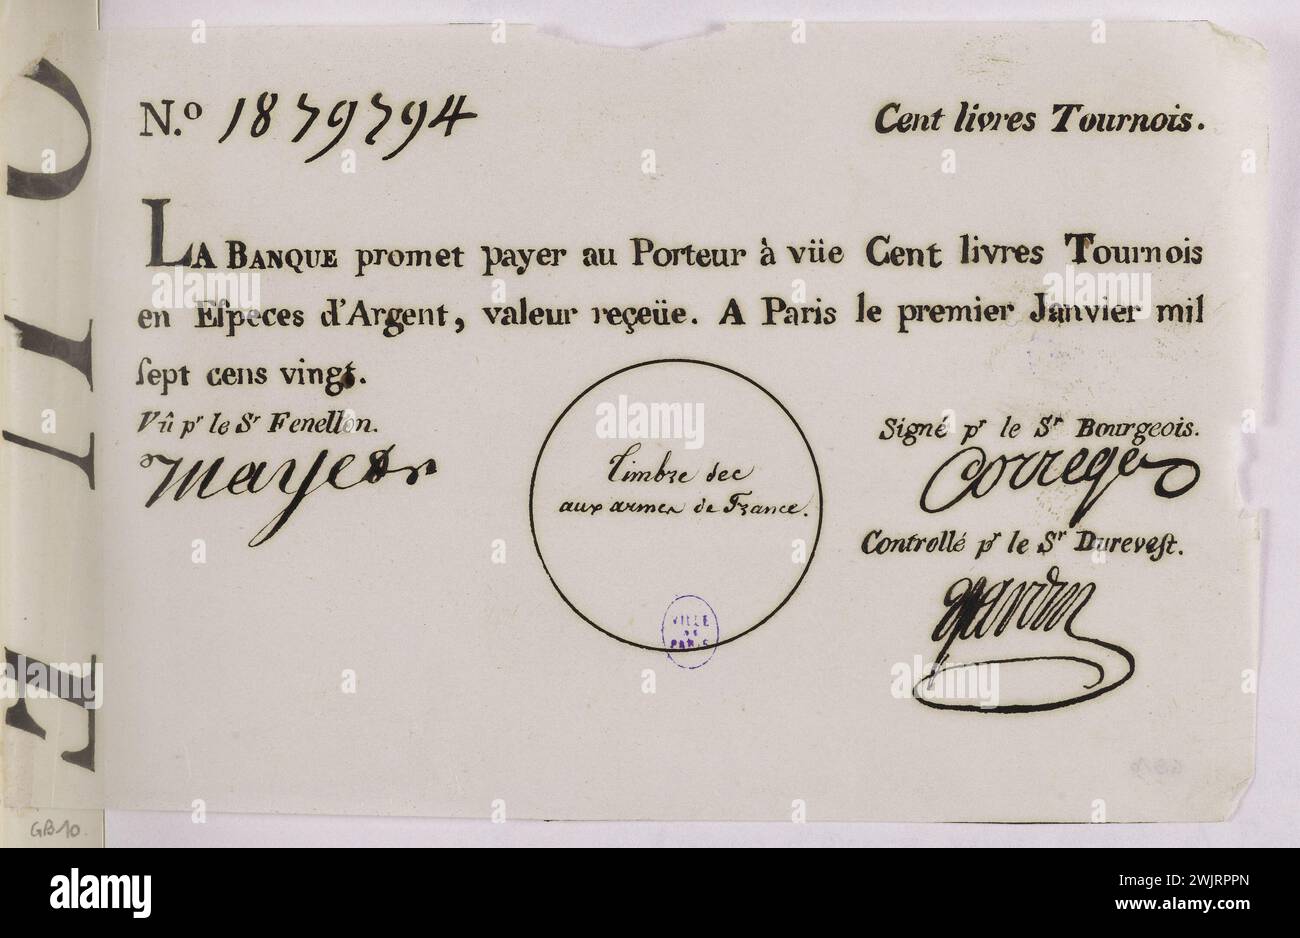 N.o 1879794
Cent livres Tournois.
LA BANQUE promet payer au Porteur à vüe Cent livres Tournois
en Eſpeces d'Argent, valeur reçeüe. A Paris le premier Janvier mil
ſept cens vingt.
Vû pr le Sr Fenellon.
Signé pr le Sr Bourgeois.
Controllé pr le Sr Durevest.
Timbre sec
aux armes de France.
VILLE
DE
PARIS
GB10
alamy
Image ID: 2WJRPPN
www.alamy.com